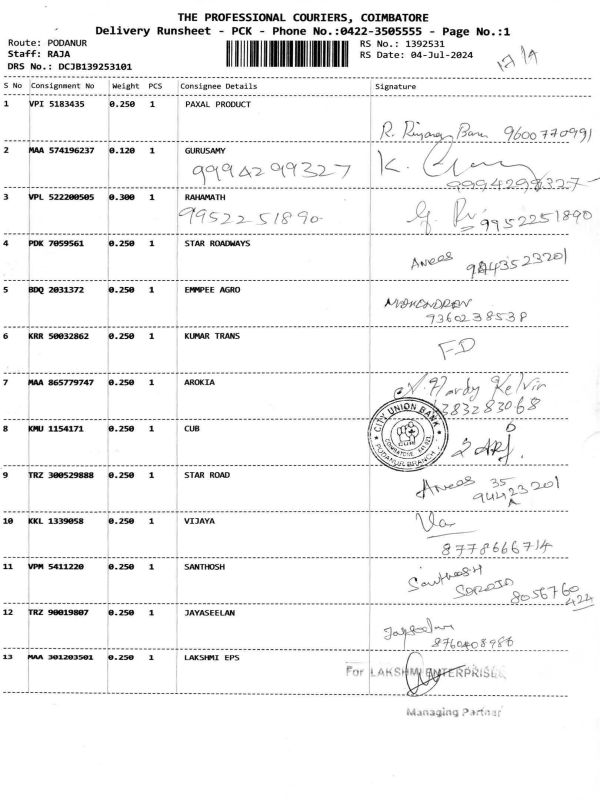 THE PROFESSIONAL COURIERS, COIMBATORE
Delivery Runsheet - PCK - Phone No.:0422-3505555 - Page No.:1
Route: PODANUR
Staff: RAJA
DRS No.: DCJB139253101
RS No.: 1392531
RS Date: 04-Jul-2024
S No Consignment No Weight PCS Consignee Details Signature
1 VPI 5183435 0.250 1 PAXAL PRODUCT
9600770991
2 MAA 574196237 0.120 1 GURUSAMY
9994299327
K.
9994299327
3 VPL 522200505 0.300 1 RAHAMATH
9952251890
9952251890
4 PDK 7059561 0.250 1 STAR ROADWAYS
Anees
9443523201
5 BDQ 2031372 0.250 1 EMMPEE AGRO
MOHENDRAN
6 KRR 50032862 0.250 1 KUMAR TRANS
F.D
7 MAA 865779747 0.250 1 AROKIA
Hardy Kelvin
8 KMU 1154171 0.250 1 CUB
CITY UNION BANK
PODANUR BRANCH
9 TRZ 300529888 0.250 1 STAR ROAD
Anees
10 KKL 1339058 0.250 1 VIJAYA
8778666714
11 VPM 5411220 0.250 1 SANTHOSH
Santhosh
8056760
424
12 TRZ 90019807 0.250 1 JAYASEELAN
Jayseelan
8760408986
13 MAA 301203501 0.250 1 LAKSHMI EPS
For LAKSHMI ENTERPRISES
Managing Partner